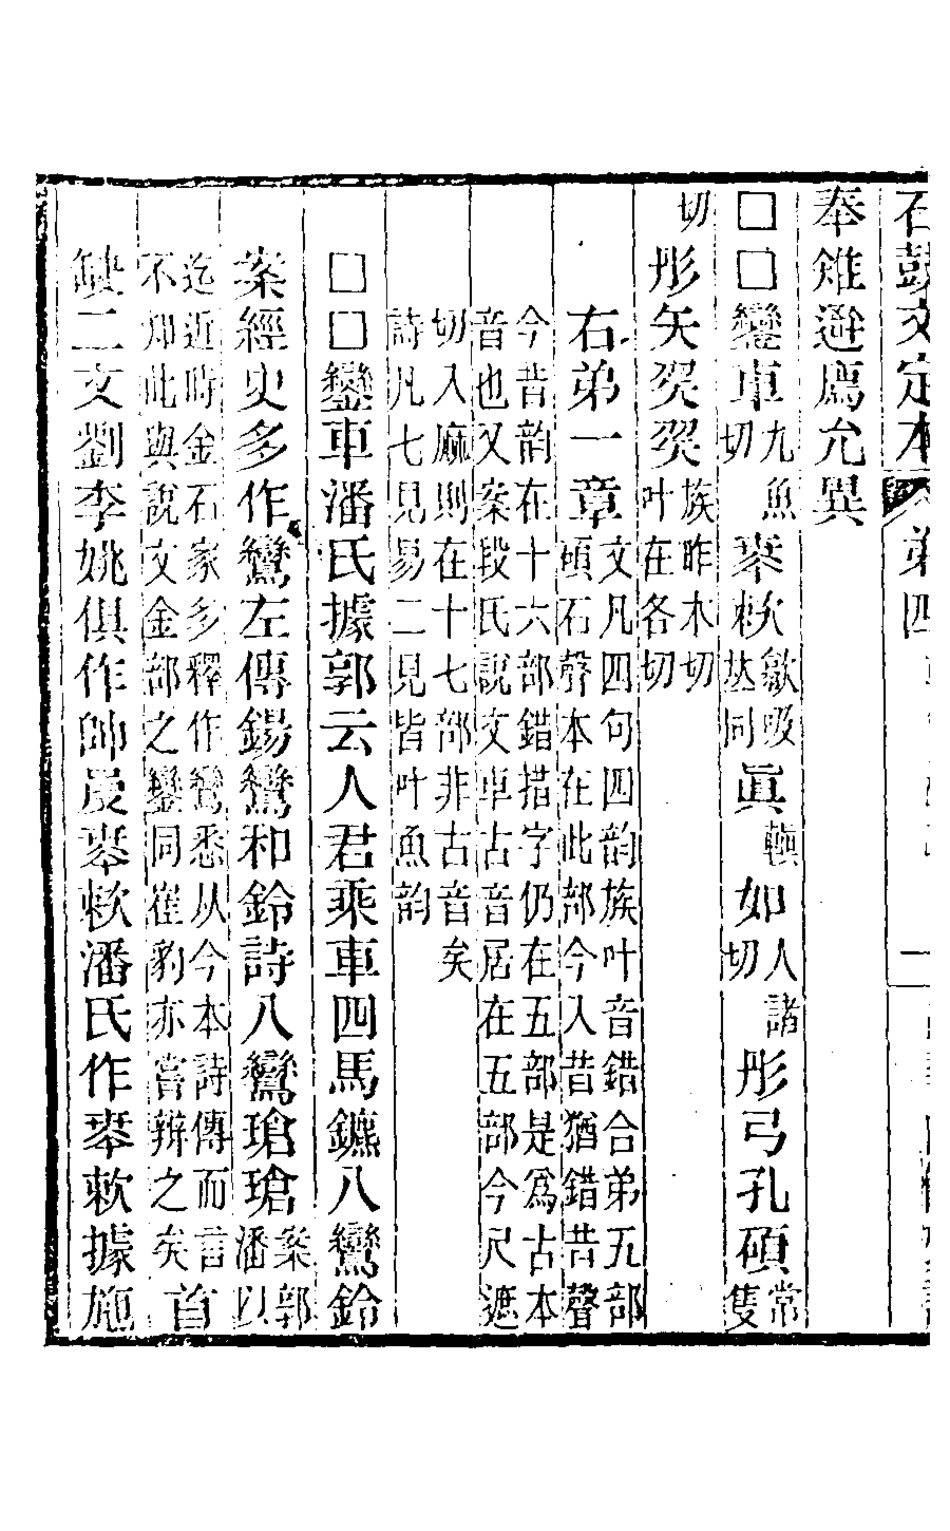 石鼓文定本 第四
奉雉遊廌允異
□□鑾車九魚切𠦪敕歙吸𠀤同眞䡩如人諸切彤弓孔碩常隻
切彤矢𡘇𡘇族昨木切叶在各切
右弟一章文凡四句四韵族叶音錯合弟五部碩石聲本在此部今入昔猶錯昔聲
今昔韵在十六部錯措字仍在五部是爲古本音也又案段氏說文車古音居在五部今尺遮
切入麻則在十七部非古音矣詩凡七見易二見皆叶魚韵
□□鑾車潘氏據郭云人君乘車四馬鑣八鸞鈴
案經史多作鸞左傳錫鸞和鈴詩八鸞瑲瑲案郭潘以
迄近時金石家多釋作鸞悉从今本詩傳而言不知此與說文金部之鑾同崔豹亦嘗辨之矣首
缺二文劉李姚俱作帥𠬝𠦪敕潘氏作𠦪敕據施